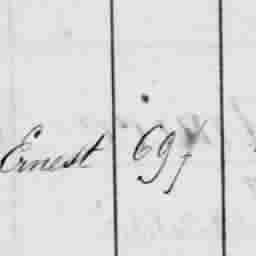 Ernest 69